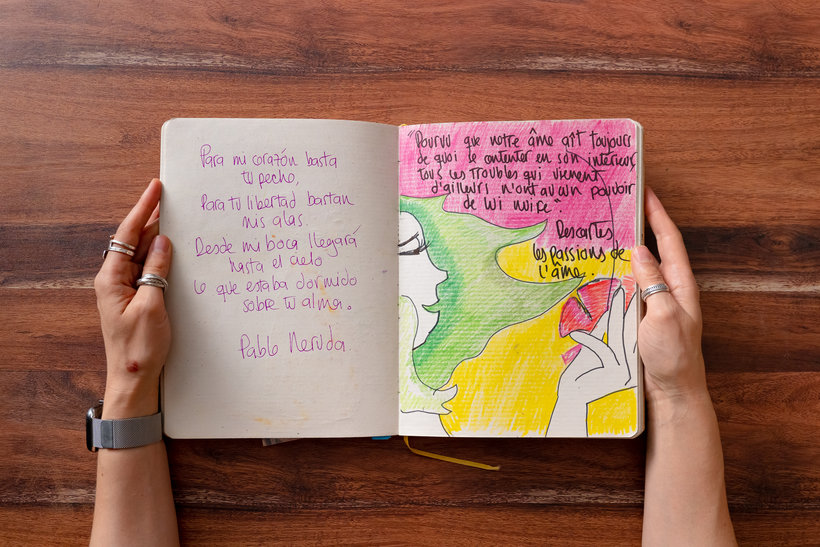 Para mi corazón basta
tu pecho,
Para tu libertad bastan
mis alas.
Desde mi boca llegará
hasta el cielo
lo que estaba dormido
sobre tu alma.
Pablo Neruda.
"Pourvu que notre âme ait toujours
de quoi se contenter en son intérieur,
tous les troubles qui viennent
d'ailleurs n'ont aucun pouvoir
de lui nuire."
Descartes
les passions de
l'âme.